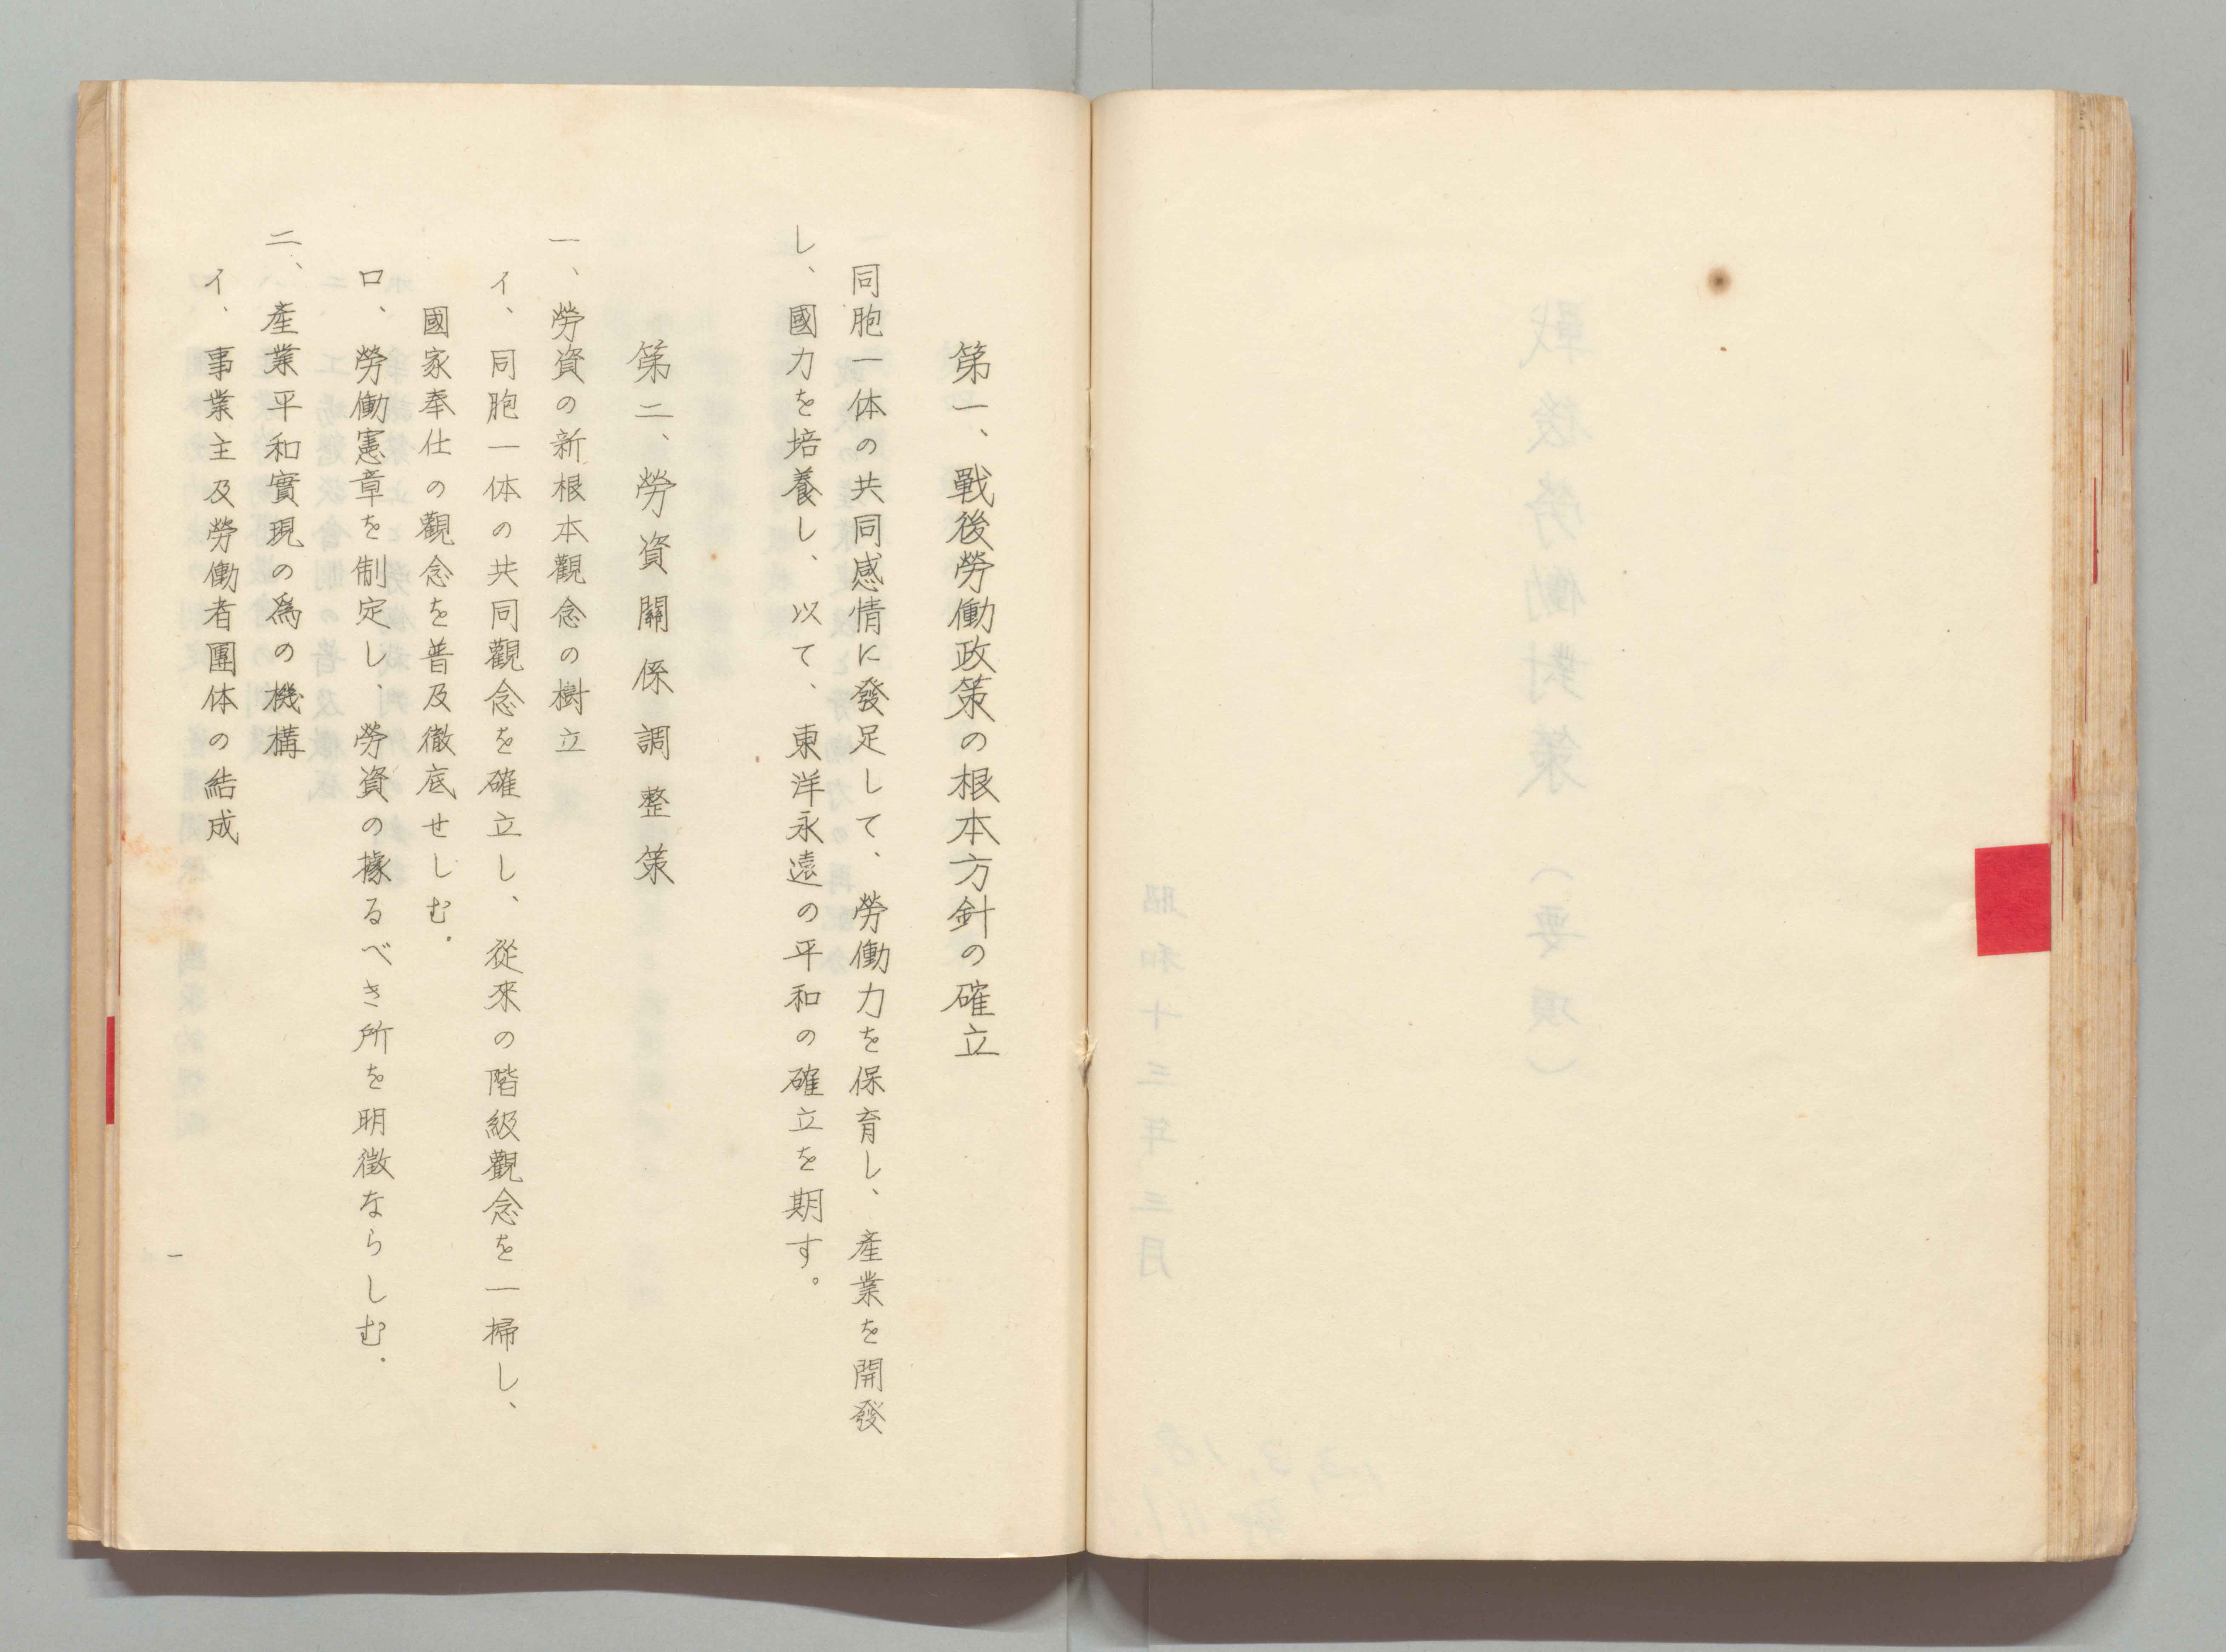 第一、戰後勞働政策の根本方針の確立
同胞一体の共同感情に發足して、勞働力を保育し、産業を開發
し、國力を培養し、以て、東洋永遠の平和の確立を期す。
第二、勞資關係調整策
一、勞資の新根本觀念の樹立
イ、同胞一体の共同觀念を確立し、從來の階級觀念を一掃し、
國家奉仕の觀念を普及徹底せしむ。
ロ、勞働憲章を制定し、勞資の據るべき所を明徵ならしむ。
二、産業平和實現の爲の機構
イ、事業主及勞働者團体の結成
一